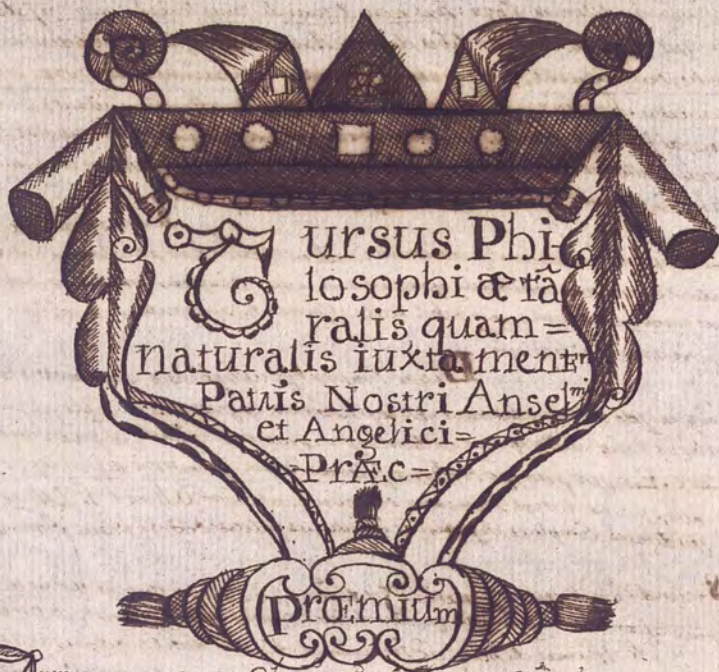 Cursus Phi-
losophiæ tã
ralis quam=
naturalis iuxta mentẽ
Patris Nostri Ansel.mi
et Angelici=
=PrÆc=
prœmium